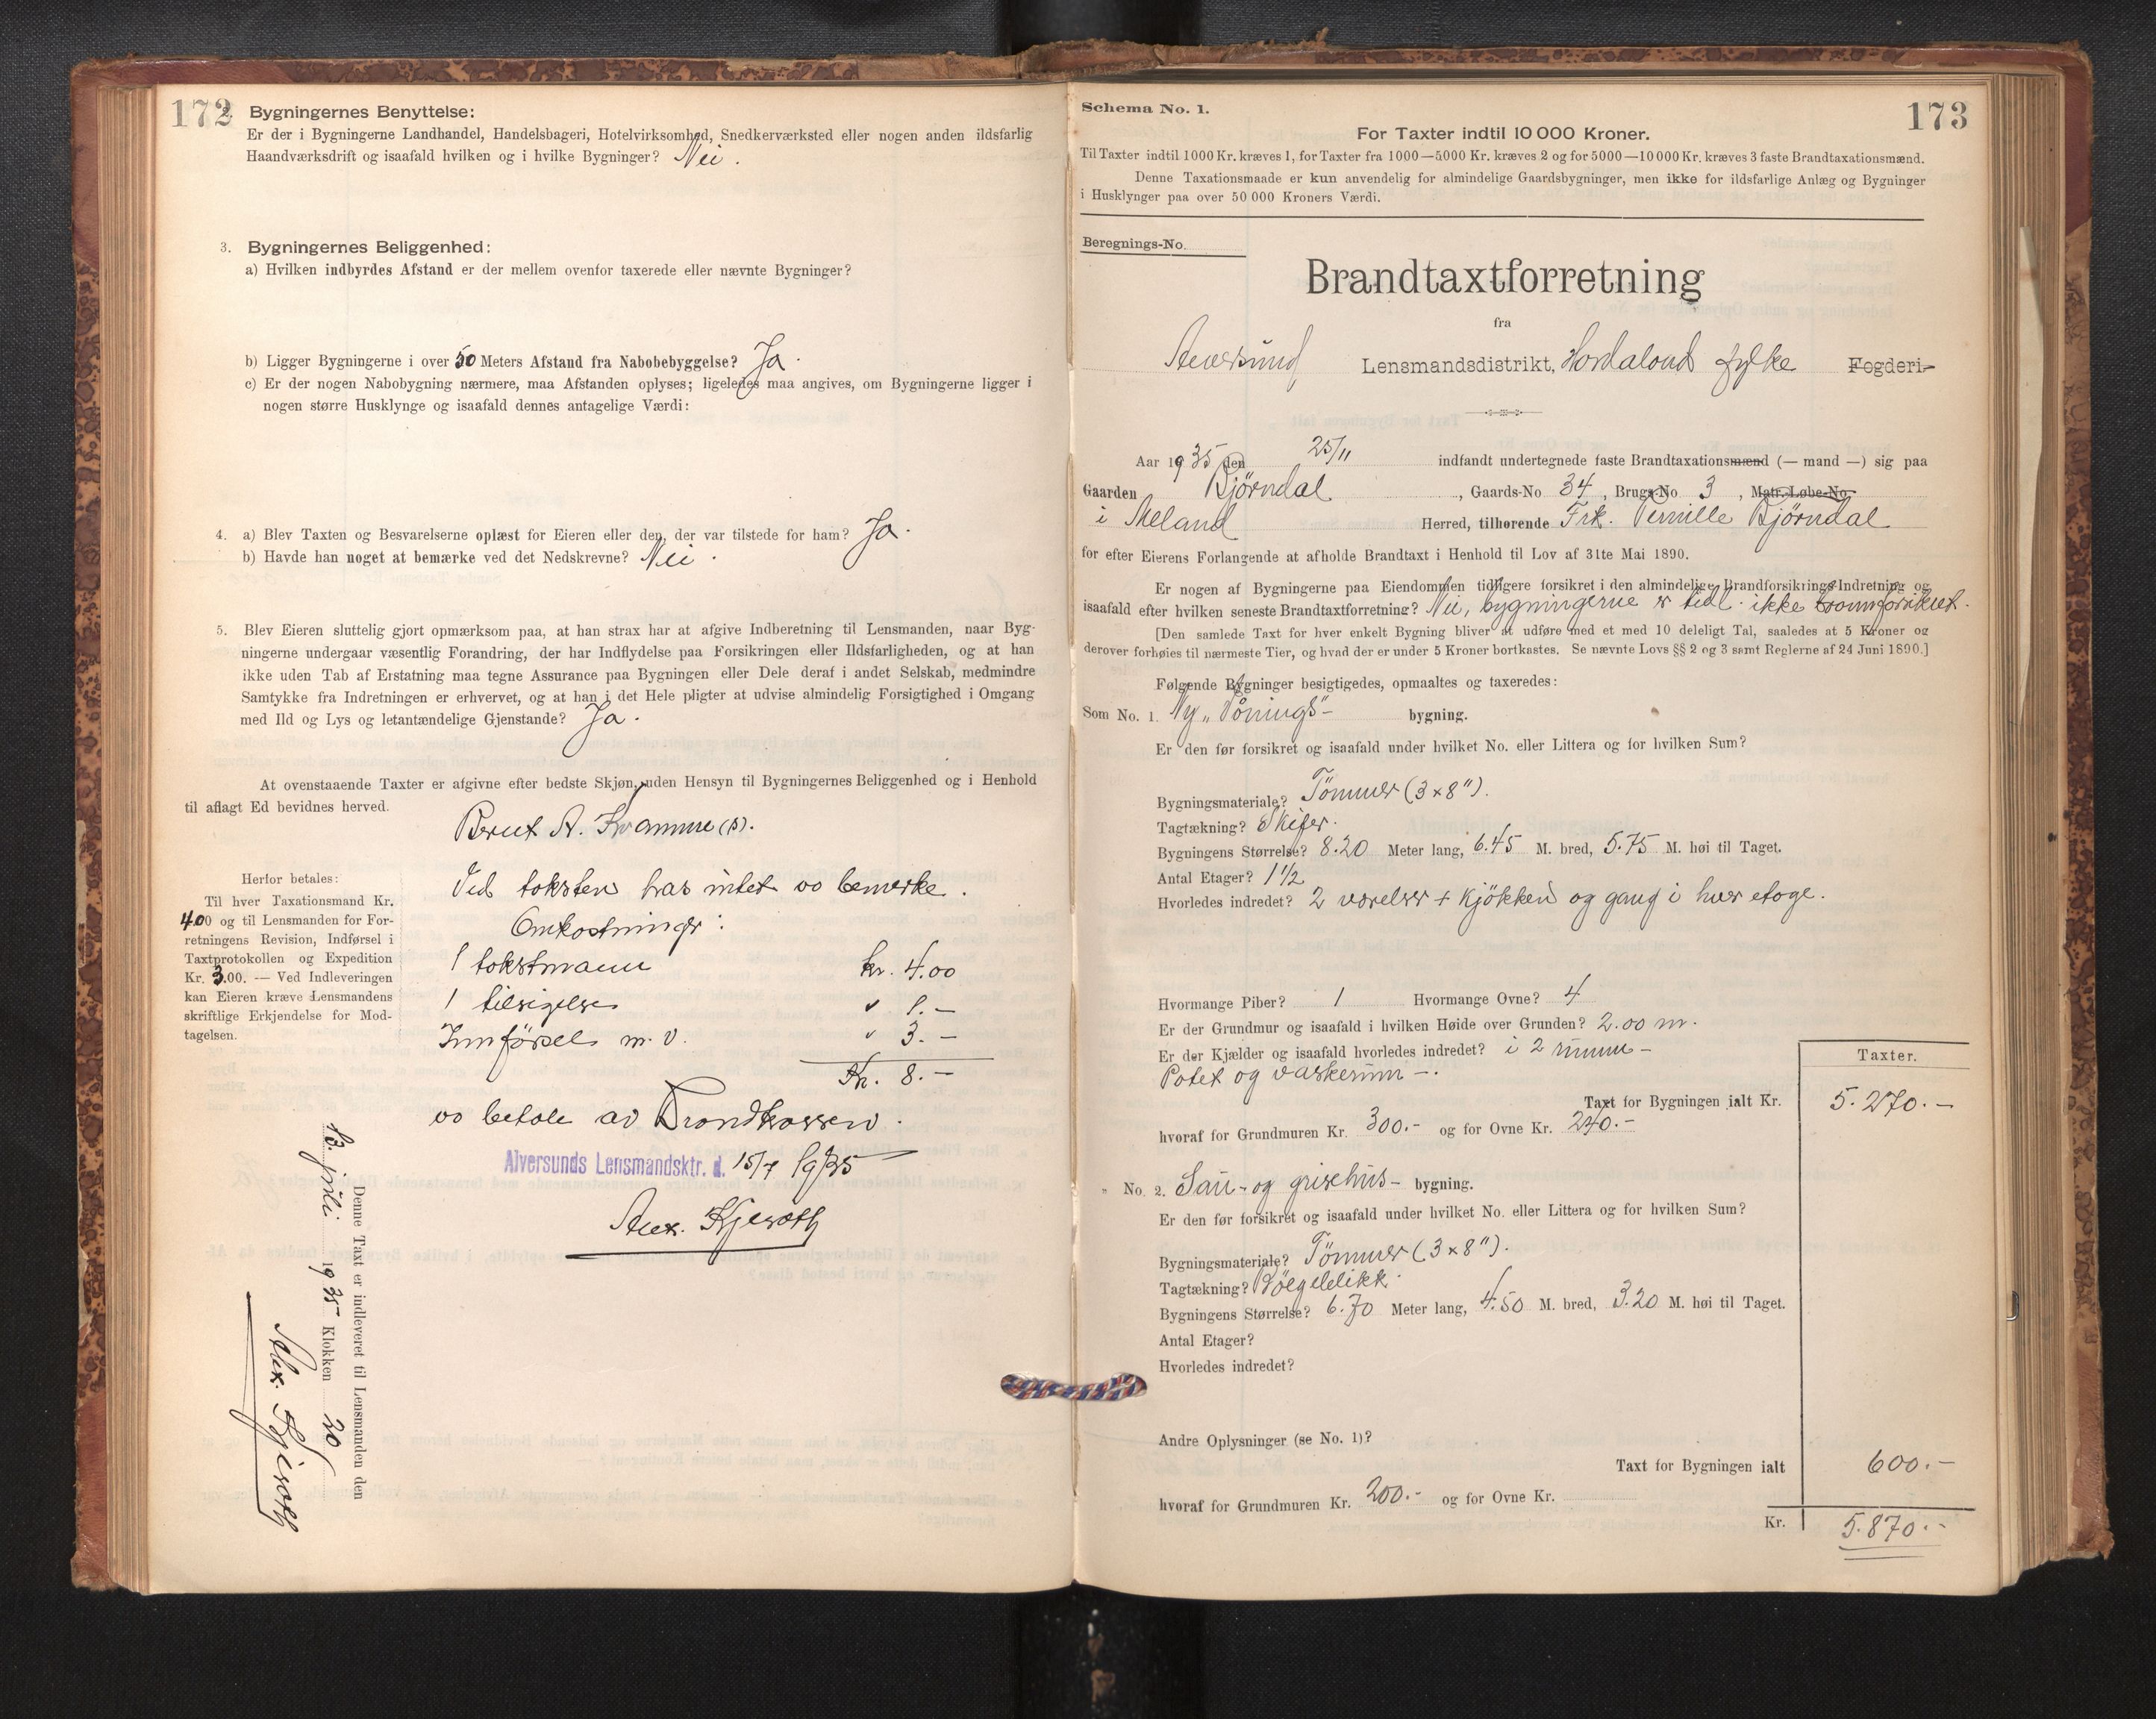 172
2. Bygningernes Benyttelse:
Er der i Bygningerne Landhandel, Handelsbageri, Hotelvirksomhed, Snedkerværksted eller nogen anden ildsfarlig
Haandværksdrift og isaafald hvilken og i hvilke Bygninger? Nei.
3. Bygningernes Beliggenhed:
a) Hvilken indbyrdes Afstand er der mellem ovenfor taxerede eller nævnte Bygninger?
b) Ligger Bygningerne i over 50 Meters Afstand fra Nabobebyggelse? Ja.
c) Er der nogen Nabobygning nærmere, maa Afstanden oplyses; ligeledes maa angives, om Bygningerne ligger i
nogen større Husklynge og isaafald dennes antagelige Værdi:
4. a) Blev Taxten og Besvarelserne oplæst for Eieren eller den, der var tilstede for ham? Ja.
b) Havde han noget at bemærke ved det Nedskrevne? Nei.
5. Blev Eieren sluttelig gjort opmærksom paa, at han strax har at afgive Indberetning til Lensmanden, naar Byg-
ningerne undergaar væsentlig Forandring, der har Indflydelse paa Forsikringen eller Ildsfarligheden, og at han
ikke uden Tab af Erstatning maa tegne Assurance paa Bygningen eller Dele deraf i andet Selskab, medmindre
Samtykke fra Indretningen er erhvervet, og at han i det Hele pligter at udvise almindelig Forsigtighed i Omgang
med Ild og Lys og letantændelige Gjenstande? Ja.
At ovenstaaende Taxter er afgivne efter bedste Skjøn, uden Hensyn til Bygningernes Beliggenhed og i Henhold
til aflagt Ed bevidnes herved.
Berut A. Kvamme (s).
Herfor betales:
Til hver Taxationsmand Kr.
4.00 og til Lensmanden for For-
retningens Revision, Indførsel i
Taxtprotokollen og Expedition
Kr. 3.00. — Ved Indleveringen
kan Eieren kræve Lensmandens
skriftlige Erkjendelse for Mod-
tagelsen.
Ved taksten has intet å bemerke.
Omkostninger:
1 takstmann kr. 4.00
1 tilsigelse " 1.-
Innførsel m.v. " 3.-
Kr. 8.-
å betale av Brandkassen.
Alversunds Lensmandsktr. d. 15/7 1935
Alex. Kjeroth
Denne Taxt er indleveret til Lensmanden den
13. juli 1935 Klokken 20
Alex. Kjeroth
173
Schema No. 1.
For Taxter indtil 10 000 Kroner.
Til Taxter indtil 1000 Kr. kræves 1, for Taxter fra 1000—5000 Kr. kræves 2 og for 5000—10000 Kr. kræves 3 faste Brandtaxationsmænd.
Denne Taxationsmaade er kun anvendelig for almindelige Gaardsbygninger, men ikke for ildsfarlige Anlæg og Bygninger
i Husklynger paa over 50 000 Kroners Værdi.
Beregnings-No.
Brandtaxtforretning
fra
Alversund Lensmandsdistrikt, Hordaland fylke Fogderi
Aar 1935 den 25/11 indfandt undertegnede faste Brandtaxationsmænd (— mand —) sig paa
Gaarden Bjørndal, Gaards-No 34, Brugs-No 3, Matr.-Løbe-No.
i Meland Herred, tilhørende Frk. Pernille Bjørndal
for efter Eierens Forlangende at afholde Brandtaxt i Henhold til Lov af 31te Mai 1890.
Er nogen af Bygningerne paa Eiendommen tidligere forsikret i den almindelige Brandforsikrings-Indretning og
isaafald efter hvilken seneste Brandtaxtforretning? Nei, bygningerne er tidl. ikke brannforsikret.
[Den samlede Taxt for hver enkelt Bygning bliver at udføre med et med 10 deleligt Tal, saaledes at 5 Kroner og
derover forhøies til nærmeste Tier, og hvad der er under 5 Kroner bortkastes. Se nævnte Lovs §§ 2 og 3 samt Reglerne af 24 Juni 1890.]
Følgende Bygninger besigtigedes, opmaaltes og taxeredes:
Som No. 1. Ny "Vånings"- bygning.
Er den før forsikret og isaafald under hvilket No. eller Littera og for hvilken Sum?
Bygningsmateriale? Tømmer (3 x 8").
Tagtækning? Skifer.
Bygningens Størrelse? 8.20 Meter lang, 6.45 M. bred, 5.75 M. høi til Taget.
Antal Etager? 1½
Hvorledes indredet? 2 værelser + kjøkken og gang i hver etage.
Hvormange Piber? 1 Hvormange Ovne? 4
Er der Grundmur og isaafald i hvilken Høide over Grunden? 2.00 m.
Er der Kjælder og isaafald hvorledes indredet? i 2 rumm -
Potet og vaskerum -.
Taxter.
Taxt for Bygningen ialt Kr. 5.270.-
hvoraf for Grundmuren Kr. 300.- og for Ovne Kr. 240.-
" No. 2. Sau- og grisehus- bygning.
Er den før forsikret og isaafald under hvilket No. eller Littera og for hvilken Sum?
Bygningsmateriale? Tømmer (3 x 8").
Tagtækning? Bølgeblikk.
Bygningens Størrelse? 6.70 Meter lang, 4.50 M. bred, 3.20 M. høi til Taget.
Antal Etager?
Hvorledes indredet?
Andre Oplysninger (se No. 1)?
Taxt for Bygningen ialt 600.-
hvoraf for Grundmuren Kr. 200.- og for Ovne Kr.
Kr. 5.870.-